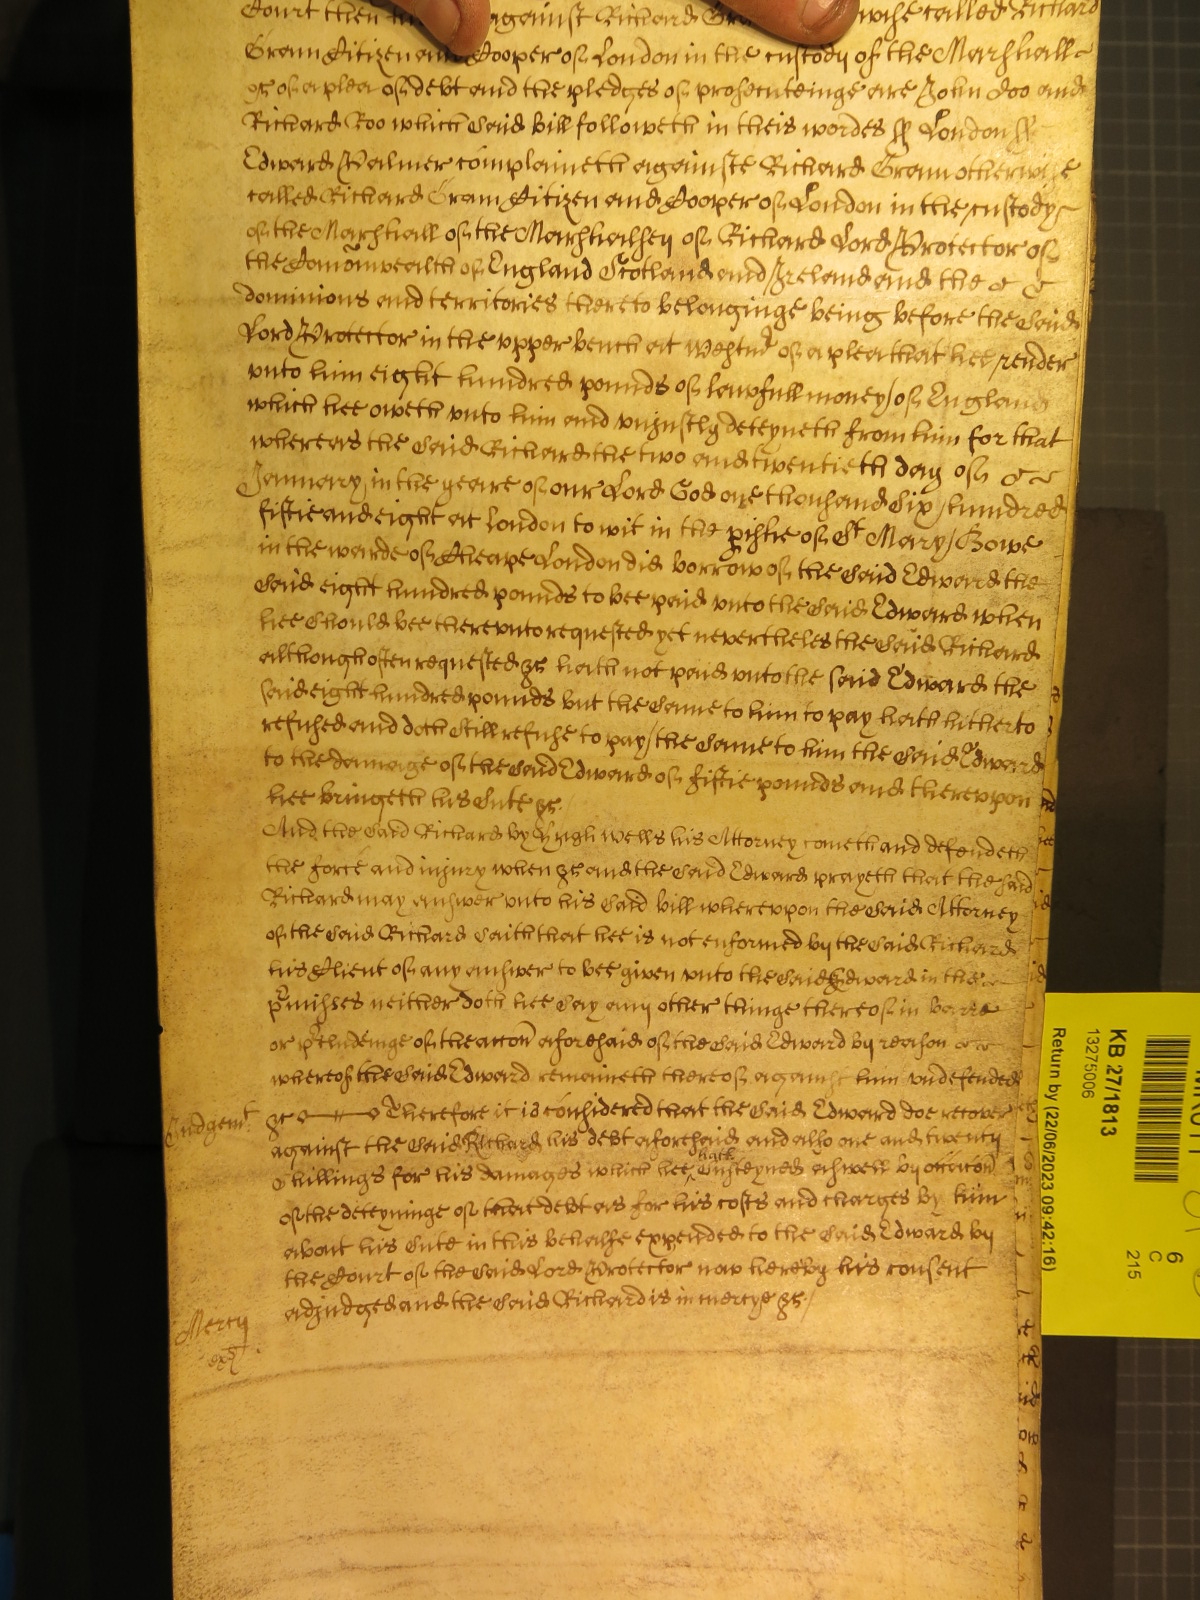 Court then against Richard wise called Richard
Gram Citizen and Cooper of London in the custody of the Marshall
&c of a plea of debt and the pledges of prosecuteinge are John Doo and
Richard Roo which said bill followeth in theis wordes ss London ss
Edward Palmer complaineth againste Richard Gram otherwise
called Richard Gram Citizen and Cooper of London in the custody
of the Marshall of the Marshalsey of Richard Lord Protector of
the Comonwealth of England Scotland and Ireland and the
dominions and territories thereto belonginge being before the said
Lord Protector in the upper bench at Westmr of a plea that hee render
unto him eight hundred pounds of lawfull money of England
which hee oweth unto him and unjustly deteyneth from him for that
whereas the said Richard the two and twentieth day of
January in the yeare of our Lord God one thousand six hundred
fiftie and eight at London to wit in the pishe of St Mary Bowe
in the warde of Cheape London did borrow of the said Edward the
said eight hundred pounds to bee paid unto the said Edward when
hee should bee thereunto requested yet nevertheles the said Richard
although often requested &c hath not paid unto the said Edward the
said eight hundred pounds but the same to him to pay hath hitherto
refused and doth still refuse to pay the same to him the said Edward
to the damage of the said Edward of fiftie pounds and thereupon
hee bringeth his sute &c
And the said Richard by Hugh Wells his Attorney cometh and defendeth
the force and injury when &c and the said Edward prayeth that the said
Richard may answer unto his said bill whereupon the said Attorney
of the said Richard saith that hee is not enformed by the said Richard
his Client of any answer to bee given unto the said Edward in the
pmisses neither doth hee say any other thinge thereof in barre
or pcludeinge of the accon aforesaid of the said Edward by reason
whereof the said Edward remaineth thereof against him undefended
Judgemt &c Therefore it is considered that the said Edward doe recover
against the said Richard his debt aforesaid and also one and twenty
shillings for his damages which hee hath susteyned aswell by occacon
of the deteyninge of that debt as for his costs and charges by him
about his sute in this behalfe expended to the said Edward by
the Court of the said Lord Protector now hereby his consent
adjudged and the said Richard is in mercye &c
Mercy
KB 27/1813
13275006
Return by (22/06/2023 09:42:16)
6
C
215